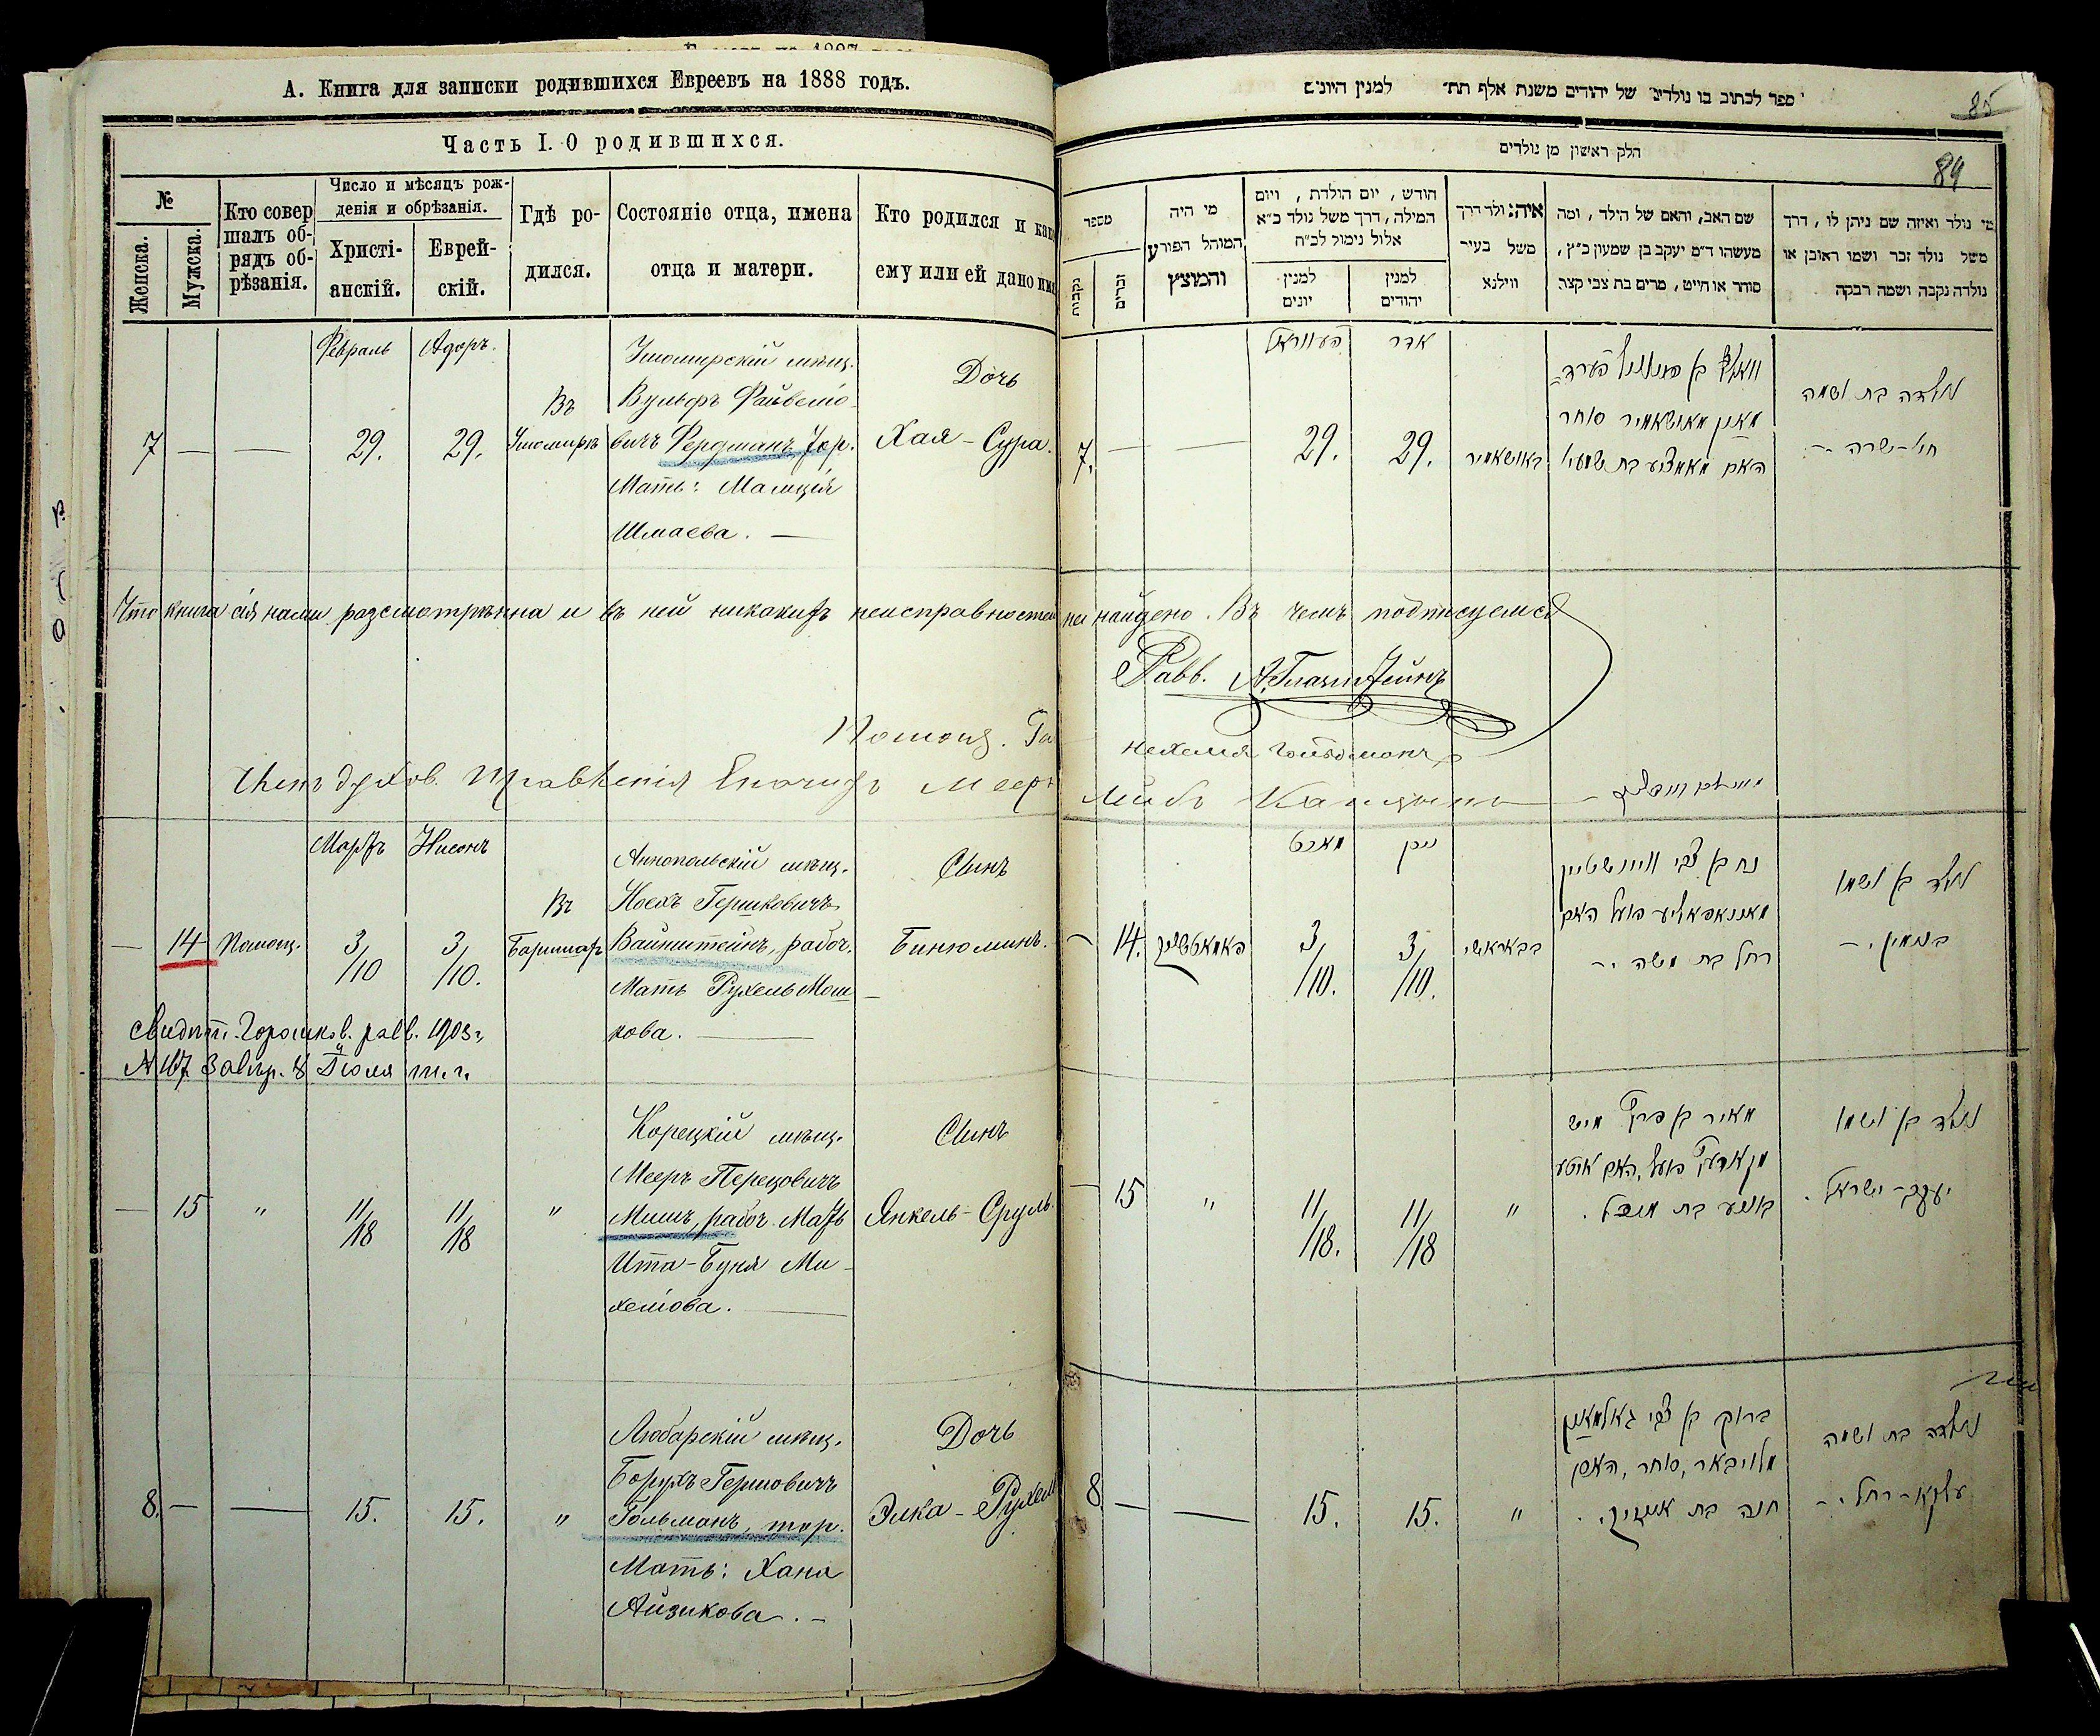 А. Книга для записки родившихся Евреевъ на 1888 годъ.
Часть I. О родившихся.
№
Женска.
Мужска.
Кто совер
шалъ об-
рядъ об-
рѣзанія.
Число и мѣсяцъ рож-
денія и обрѣзанія.
Христі-
анскій.
Еврей-
скій.
Гдѣ ро-
дился.
Состояніе отца, имена
отца и матери.
Кто родился и как
ему или ей дано им
Февраль
Адоръ.
7
—
—
29.
29.
Въ
Ушомирѣ
Ушомирскій мѣщ.
Вульфъ Файвеліо-
вичъ Фердманъ, тор.
Мать: Малція
Шмаева. —
Дочь
Хая-Сура.
Что книга сія нами разсмотрѣнна и въ ней никакихъ неисправностей не найдено. Въ чемъ подписуемся
Равв.
Помощ.
Нехемія
Член духов. правленія
Мееръ
Лейбъ
Мартъ
Нисонъ
—
14
Помощ.
3/10
3/10.
Въ
Барашах
Аннопольскій мѣщ.
Ноехъ Гершковичъ
Вайнштейнъ, рабоч.
Мать Рухель Мош-
кова. —
Сынъ
Биньюминъ.
Свидѣт. Горошков. равв. 1903 г.
№ 167 завѣр. 8 Іюля т. г.
—
15
"
11/18
11/18
"
Корецкій мѣщ.
Мееръ Перецовичъ
Мишъ, рабоч. Мать
Ита-Буня Ми-
хеліова. —
Сынъ
Янкель-Сруль.
8.
—
—
15.
15.
"
Любарскій мѣщ.
Борухъ Гершовичъ
Гольманъ, тор.
Мать: Хана
Айзикова. —
Дочь
Элка-Рухель
ספר לכתוב בו נולדים של יהודים משנת אלף תת״ למנין היונים
85
84
הלק ראשון מן נולדים
מספר
נקבות
זכרים
מי היה
המוהל הפורע
והמוצץ
חודש, יום הולדת, ויום
המילה, דרך משל נולד כ״א
אלול נימול לכ״ח
למנין
יונים
למנין
יהודים
איה: ולד דרך
משל בעיר
ווילנא
שם האב, והאם של הילד, ומה
מעשהו ד״מ יעקב בן שמעון כ״ץ,
סוחר או חייט, מרים בת צבי קצר:
מי נולד ואיזה שם ניתן לו, דרך
משל נולד זכר ושמו ראובן או
נולדה נקבה ושמה רבקה
אדר
7.
—
—
29.
29.
באושאמיר
מאן מאושאמיר סוחר
נולדה בת ושמה
חי׳-שרה -
מארט
ניסן
14.
3/10.
3/10.
בבאראשי
נח בן צבי וויינשטיין
מאננאפאליע פועל האם
רחל בת משה .-
נולד בן ושמו
בנימין .-
15
"
11/18.
11/18
"
מאיר בן פרץ מיש
נולד בן ושמו
יעקב-ישראל.
8
—
—
15.
15.
"
ברוך בן צבי גאלמאן
מליובאר, סוחר, האם
חנה בת אייזיק.
נולדה בת ושמה
עלקא-רחל.-